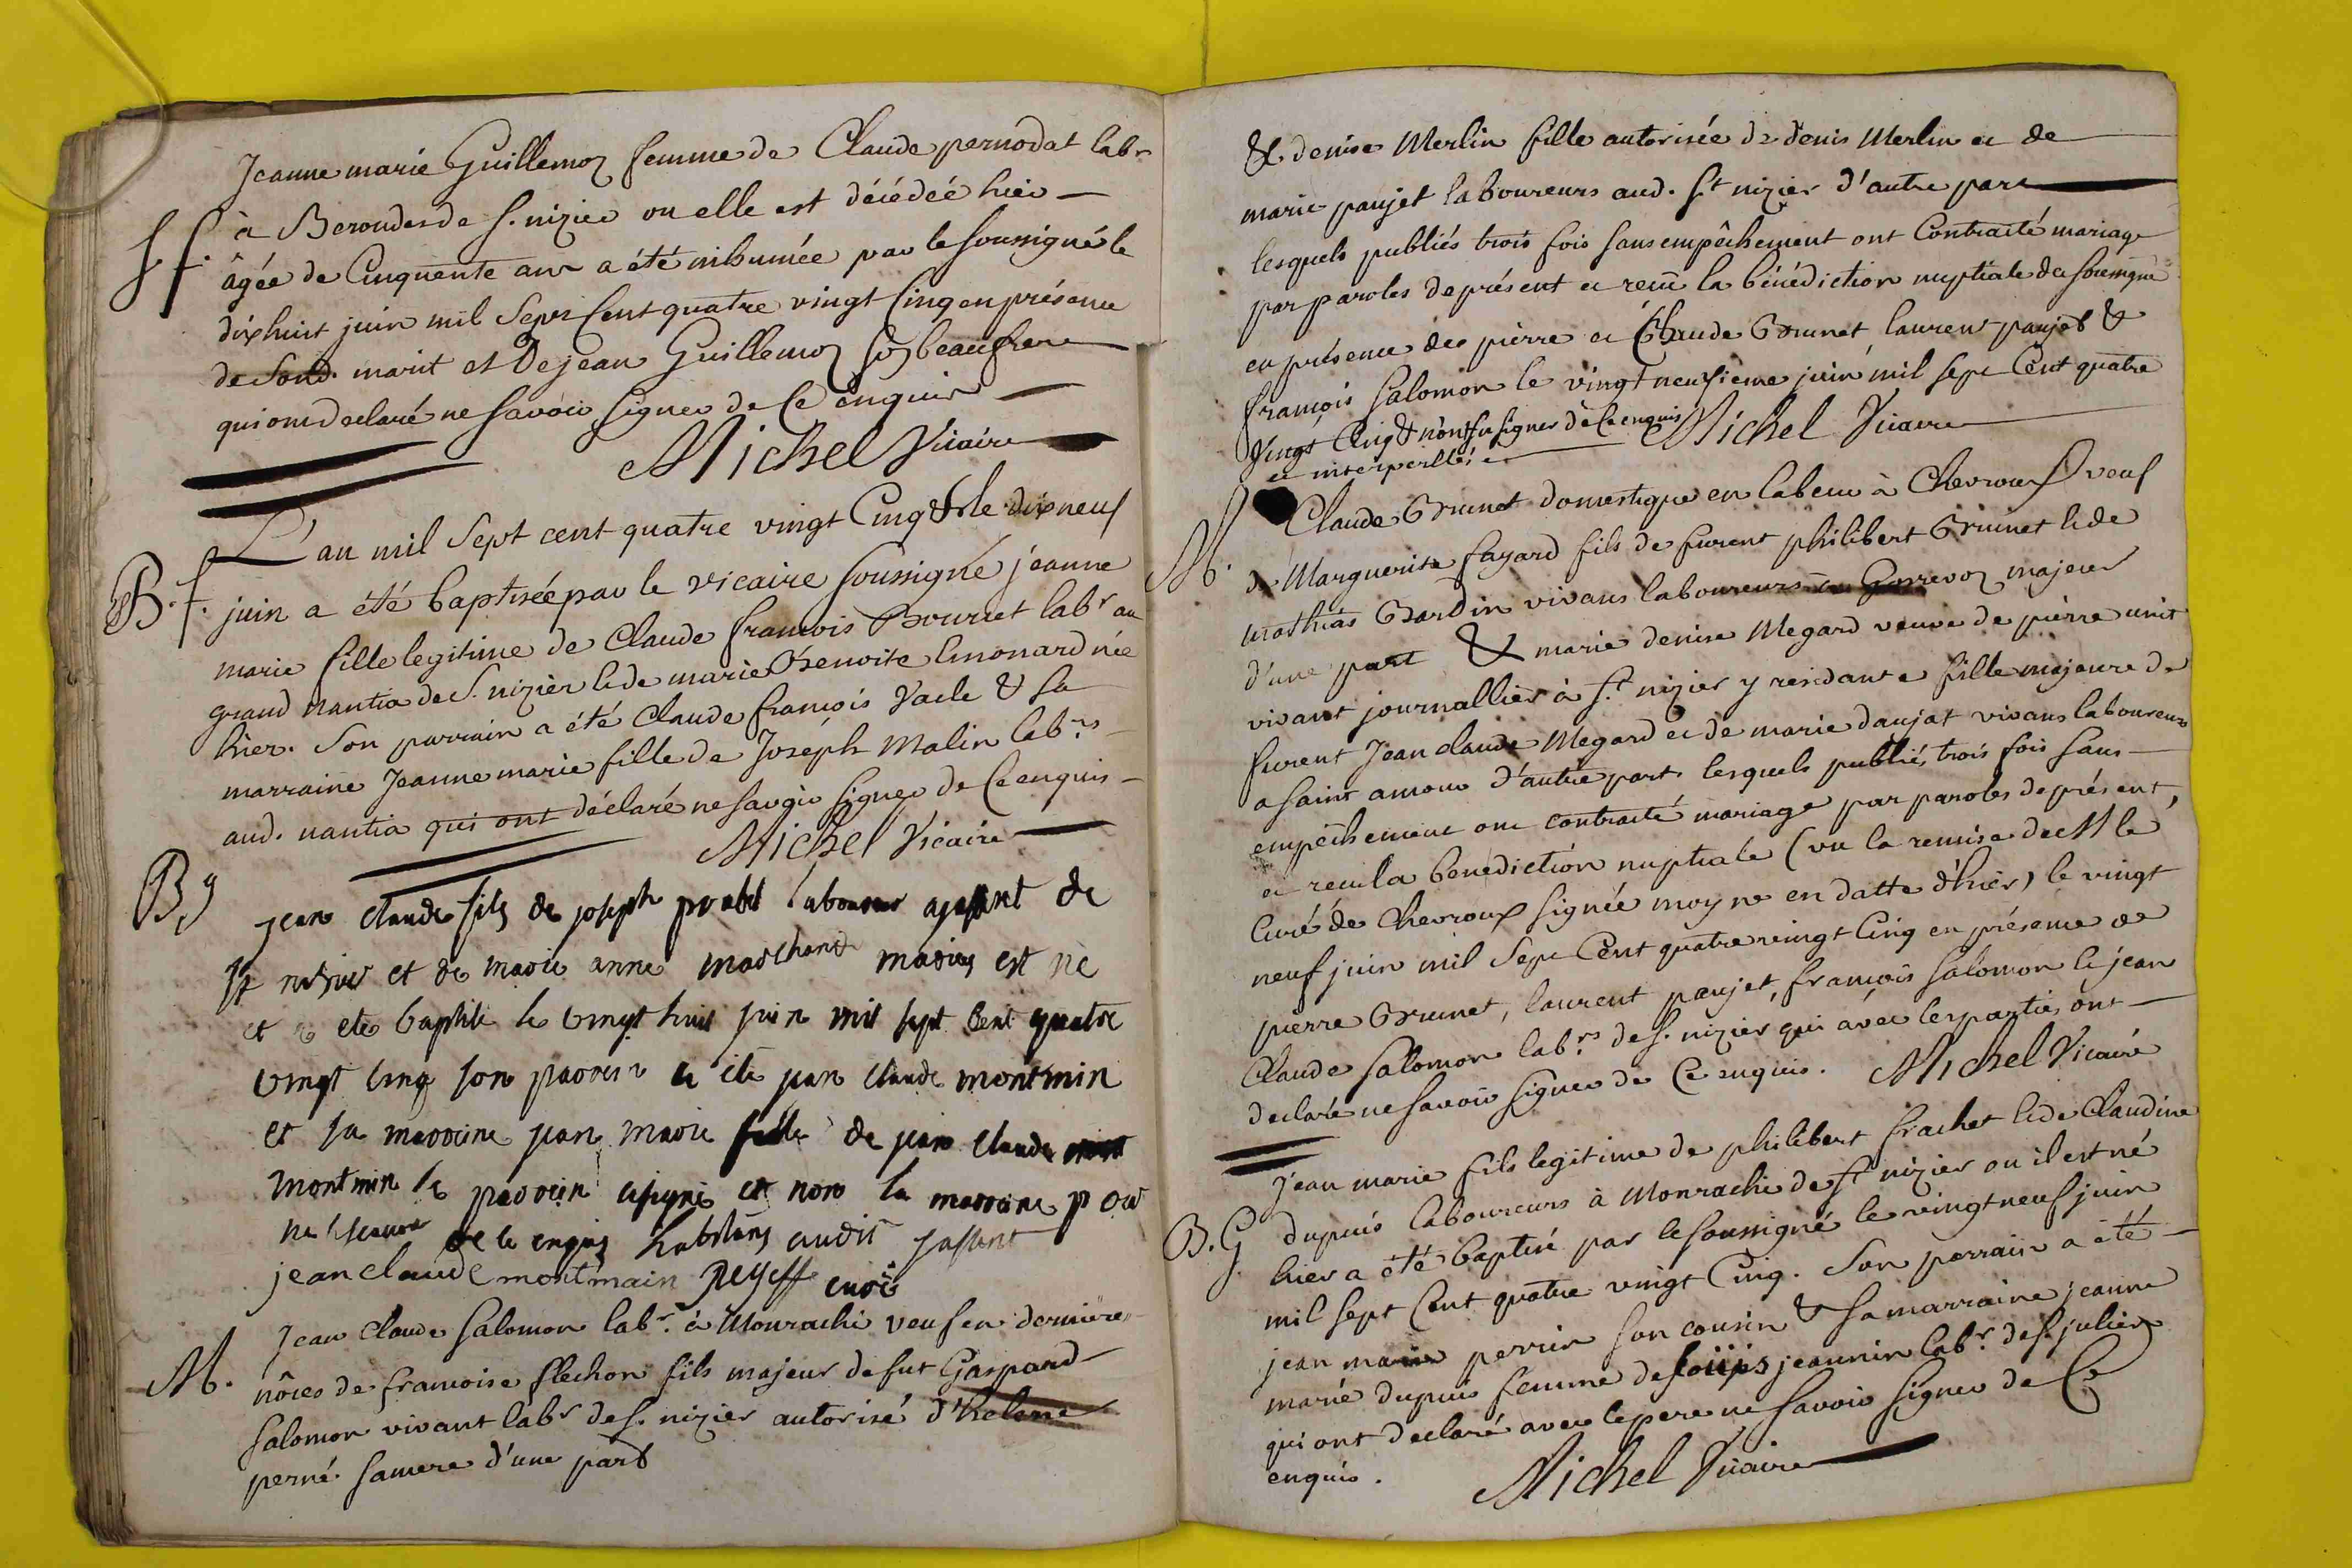 Jeanne marie Guillemoz femme de Claude pernodat labr
S f. à Beroudes de S. nizier ou elle est décédée hier
âgée de Cinquente ans a été inhumée par le soussigné le
dixhuit juin mil Sept Cent quatre vingt Cinq en présence
de Sond. marit et De jean Guillemoz son beaufrere
qui ont declaré ne savoir signer de Ce enquis
Michel Vicaire
L'an mil Sept cent quatre vingt Cinq & le dix neuf
B. f. juin a été baptisée par le vicaire soussigné jeanne
marie fille legitime de Claude françois Bourcet labr au
grand nantia de S. nizier & de marie Benoite Emonard née
hier. Son parrain a été Claude françois Vacle & sa
marraine Jeanne marie fille de Joseph Malin labrs
aud. nantia qui ont déclaré ne savoir signer de Ce enquis
Michel Vicaire
B g jean claude fils de joseph probst laboureur a jassant de
st nizier et de marie anne marchand mariés est ne
et a ete baptisé le vingt huit juin mil sept cent quatre
vingt cinq son parrain a été jean claude montmin
et sa marraine jean marie fille de jean claude
montmin le parrain a signé et non la marraine pour
ne scavoir de ce enquis habitans audit jassent
jean claude montmain curé
M. Jean Claude Salomon labr. à Monrachi veuf en derniere
nôces de francoise flechon fils majeur de fut Gaspard
Salomon vivant labr de S. nizier autorisé d'helene
perné sa mere d'une part
& denise Merlin fille autorisée de denis Merlin et de
marie paujet laboureurs aud. St nizier d'autre part
lesquels publiés trois fois sans empêchement ont Contracté mariage
par paroles de présent et reçu la bénédiction nuptiale du soussigné
en présence de pierre et Claude Brunet, laurent paujet &
françois Salomon le vingt neuvieme juin mil sept Cent quatre
Vingt Cinq & n'ont su signer de Ce enquis Michel Vicaire
et interpellés
M. Claude Brunet domestique en labeur à Chevroux veuf
de Marguerite fayard fils de furent philibert Brunet & de
mathias Bardin vivans laboureurs à Gorrevoz majeur
d'une part & marie denise Megard veuve de pierre unit
vivant journallier à St nizier y residante fille majeure de
furent Jean claude Megard et de marie daujat vivans laboureurs
a saint amour d'autre part, lesquels publiés trois fois sans
empêchement ont contracté mariage par paroles de présent,
et reçu la benediction nuptiale (vu la remise de M le
Curé de Chevroux signée moyne en datte d'hier) le vingt
neuf juin mil Sept Cent quatre vingt Cinq en présence de
pierre Brunet, laurent paujet, françois Salomon & jean
Claude Salomon labrs de S. nizier qui avec les parties ont
declaré ne savoir signer de Ce enquis. Michel Vicaire
Jean marie fils legitime de philibert frachet & de Claudine
B. G dupuis laboureurs à Monrachi de St nizier ou il est né
hier a été baptisé par le soussigné le vingt neuf juin
mil sept Cent quatre vingt Cinq. Son parrain a été
jean marie perrin son cousin & sa marraine jeanne
marie dupuis femme de loüis jeannin labr. de S. julien
qui ont declaré avec le pere ne savoir signer de Ce
enquis. Michel Vicaire